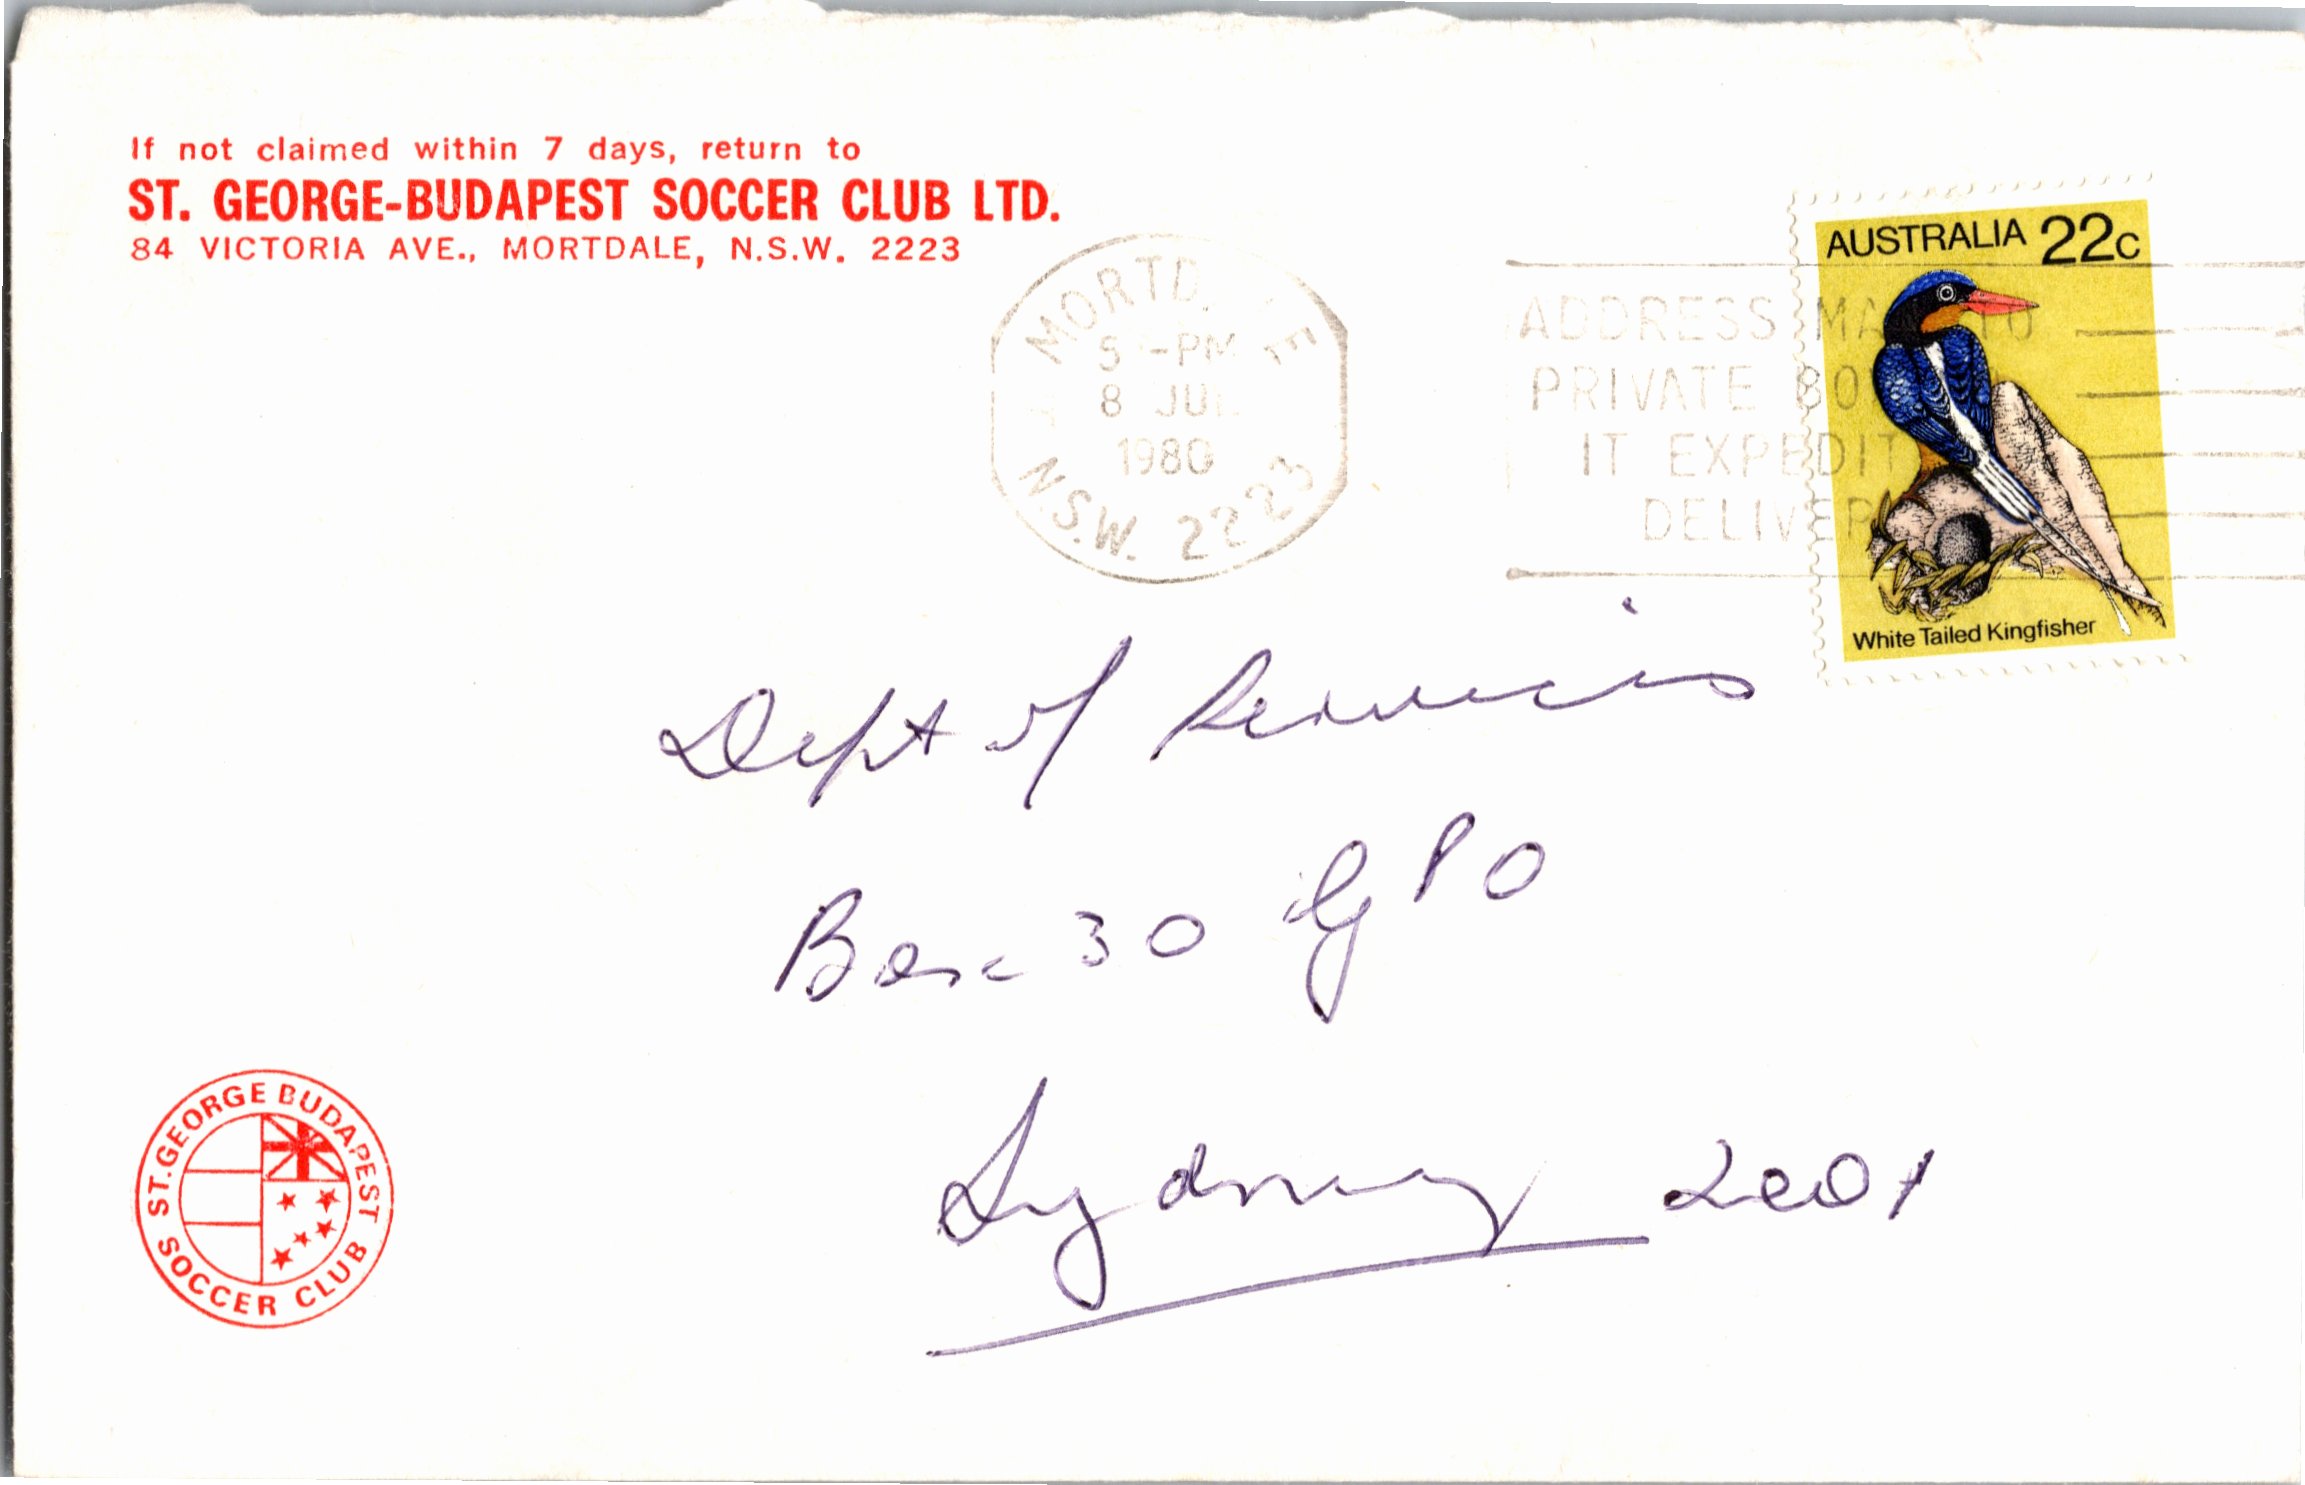 If not claimed within 7 days, return to
ST. GEORGE-BUDAPEST SOCCER CLUB LTD.
84 VICTORIA AVE., MORTDALE, N.S.W. 2223
AUSTRALIA 22c
White Tailed Kingfisher
MORTD E
5 -PM
8 JU
1980
N.S.W. 2223
ADDRESS MA TO
PRIVATE BO
IT EXPEDIT
DELIVER
Dept of Services
Box 30 GPO
Sydney 2001
ST. GEORGE BUDAPEST
SOCCER CLUB